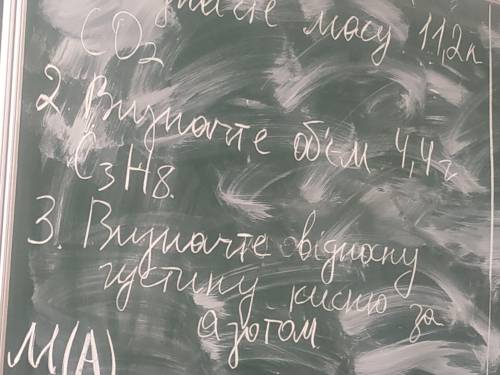 масу 11,2л
CO2
2. Визначте об'єм 4,4г
C3H8.
3. Визначте відносну
густину кисню за
азотом
M(A)